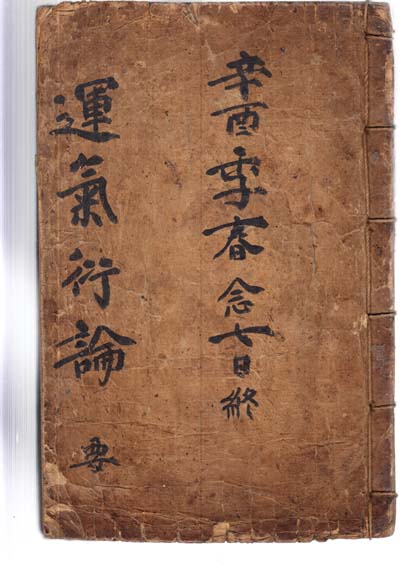 辛酉季春念七日終
運氣衍論 要